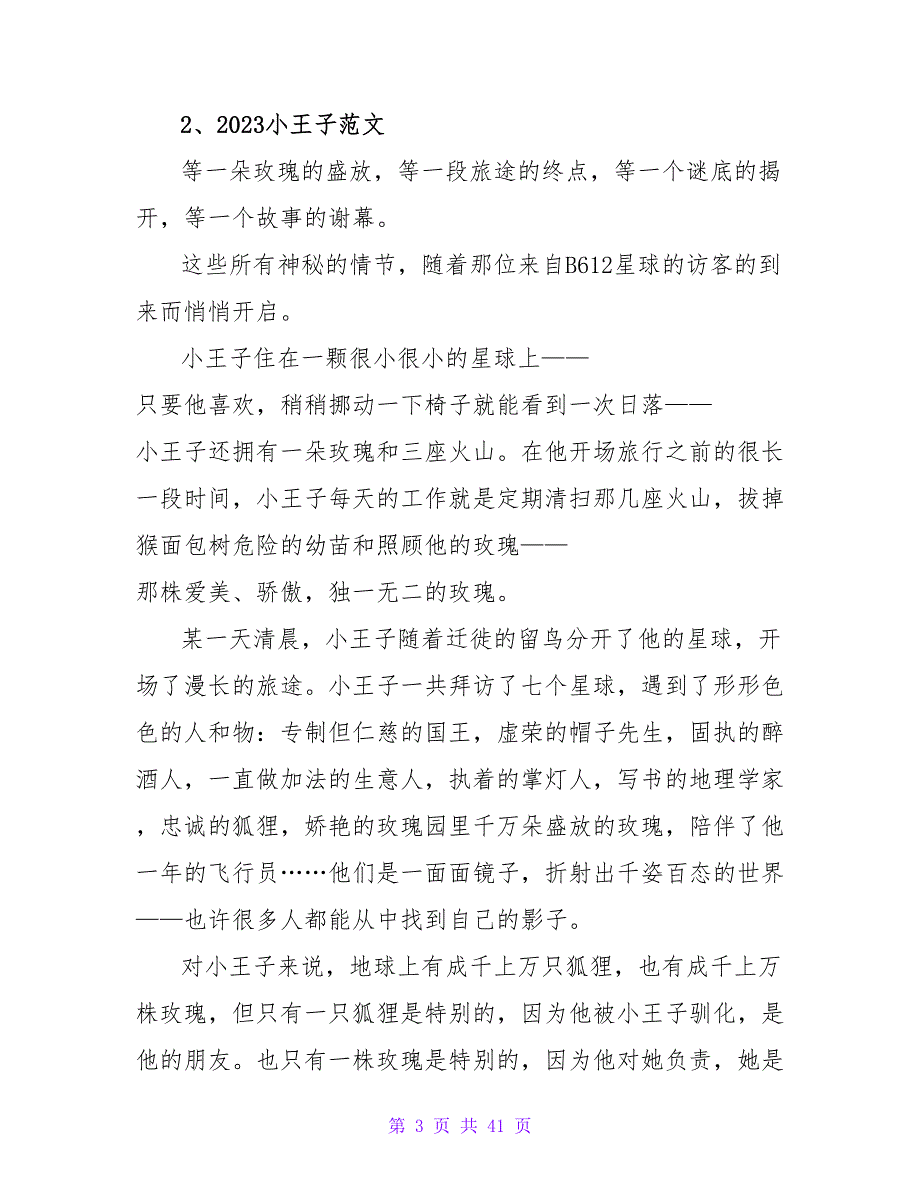 2、2023小王子范文
等一朵玫瑰的盛放，等一段旅途的终点，等一个谜底的揭
开，等一个故事的谢幕。
这些所有神秘的情节，随着那位来自B612星球的访客的到
来而悄悄开启。
小王子住在一颗很小很小的星球上——
只要他喜欢，稍稍挪动一下椅子就能看到一次日落——
小王子还拥有一朵玫瑰和三座火山。在他开场旅行之前的很长
一段时间，小王子每天的工作就是定期清扫那几座火山，拔掉
猴面包树危险的幼苗和照顾他的玫瑰——
那株爱美、骄傲，独一无二的玫瑰。
某一天清晨，小王子随着迁徙的留鸟分开了他的星球，开
场了漫长的旅途。小王子一共拜访了七个星球，遇到了形形色
色的人和物：专制但仁慈的国王，虚荣的帽子先生，固执的醉
酒人，一直做加法的生意人，执着的掌灯人，写书的地理学家
，忠诚的狐狸，娇艳的玫瑰园里千万朵盛放的玫瑰，陪伴了他
一年的飞行员……他们是一面面镜子，折射出千姿百态的世界
——也许很多人都能从中找到自己的影子。
对小王子来说，地球上有成千上万只狐狸，也有成千上万
株玫瑰，但只有一只狐狸是特别的，因为他被小王子驯化，是
他的朋友。也只有一株玫瑰是特别的，因为他对她负责，她是
第 3 页 共 41 页